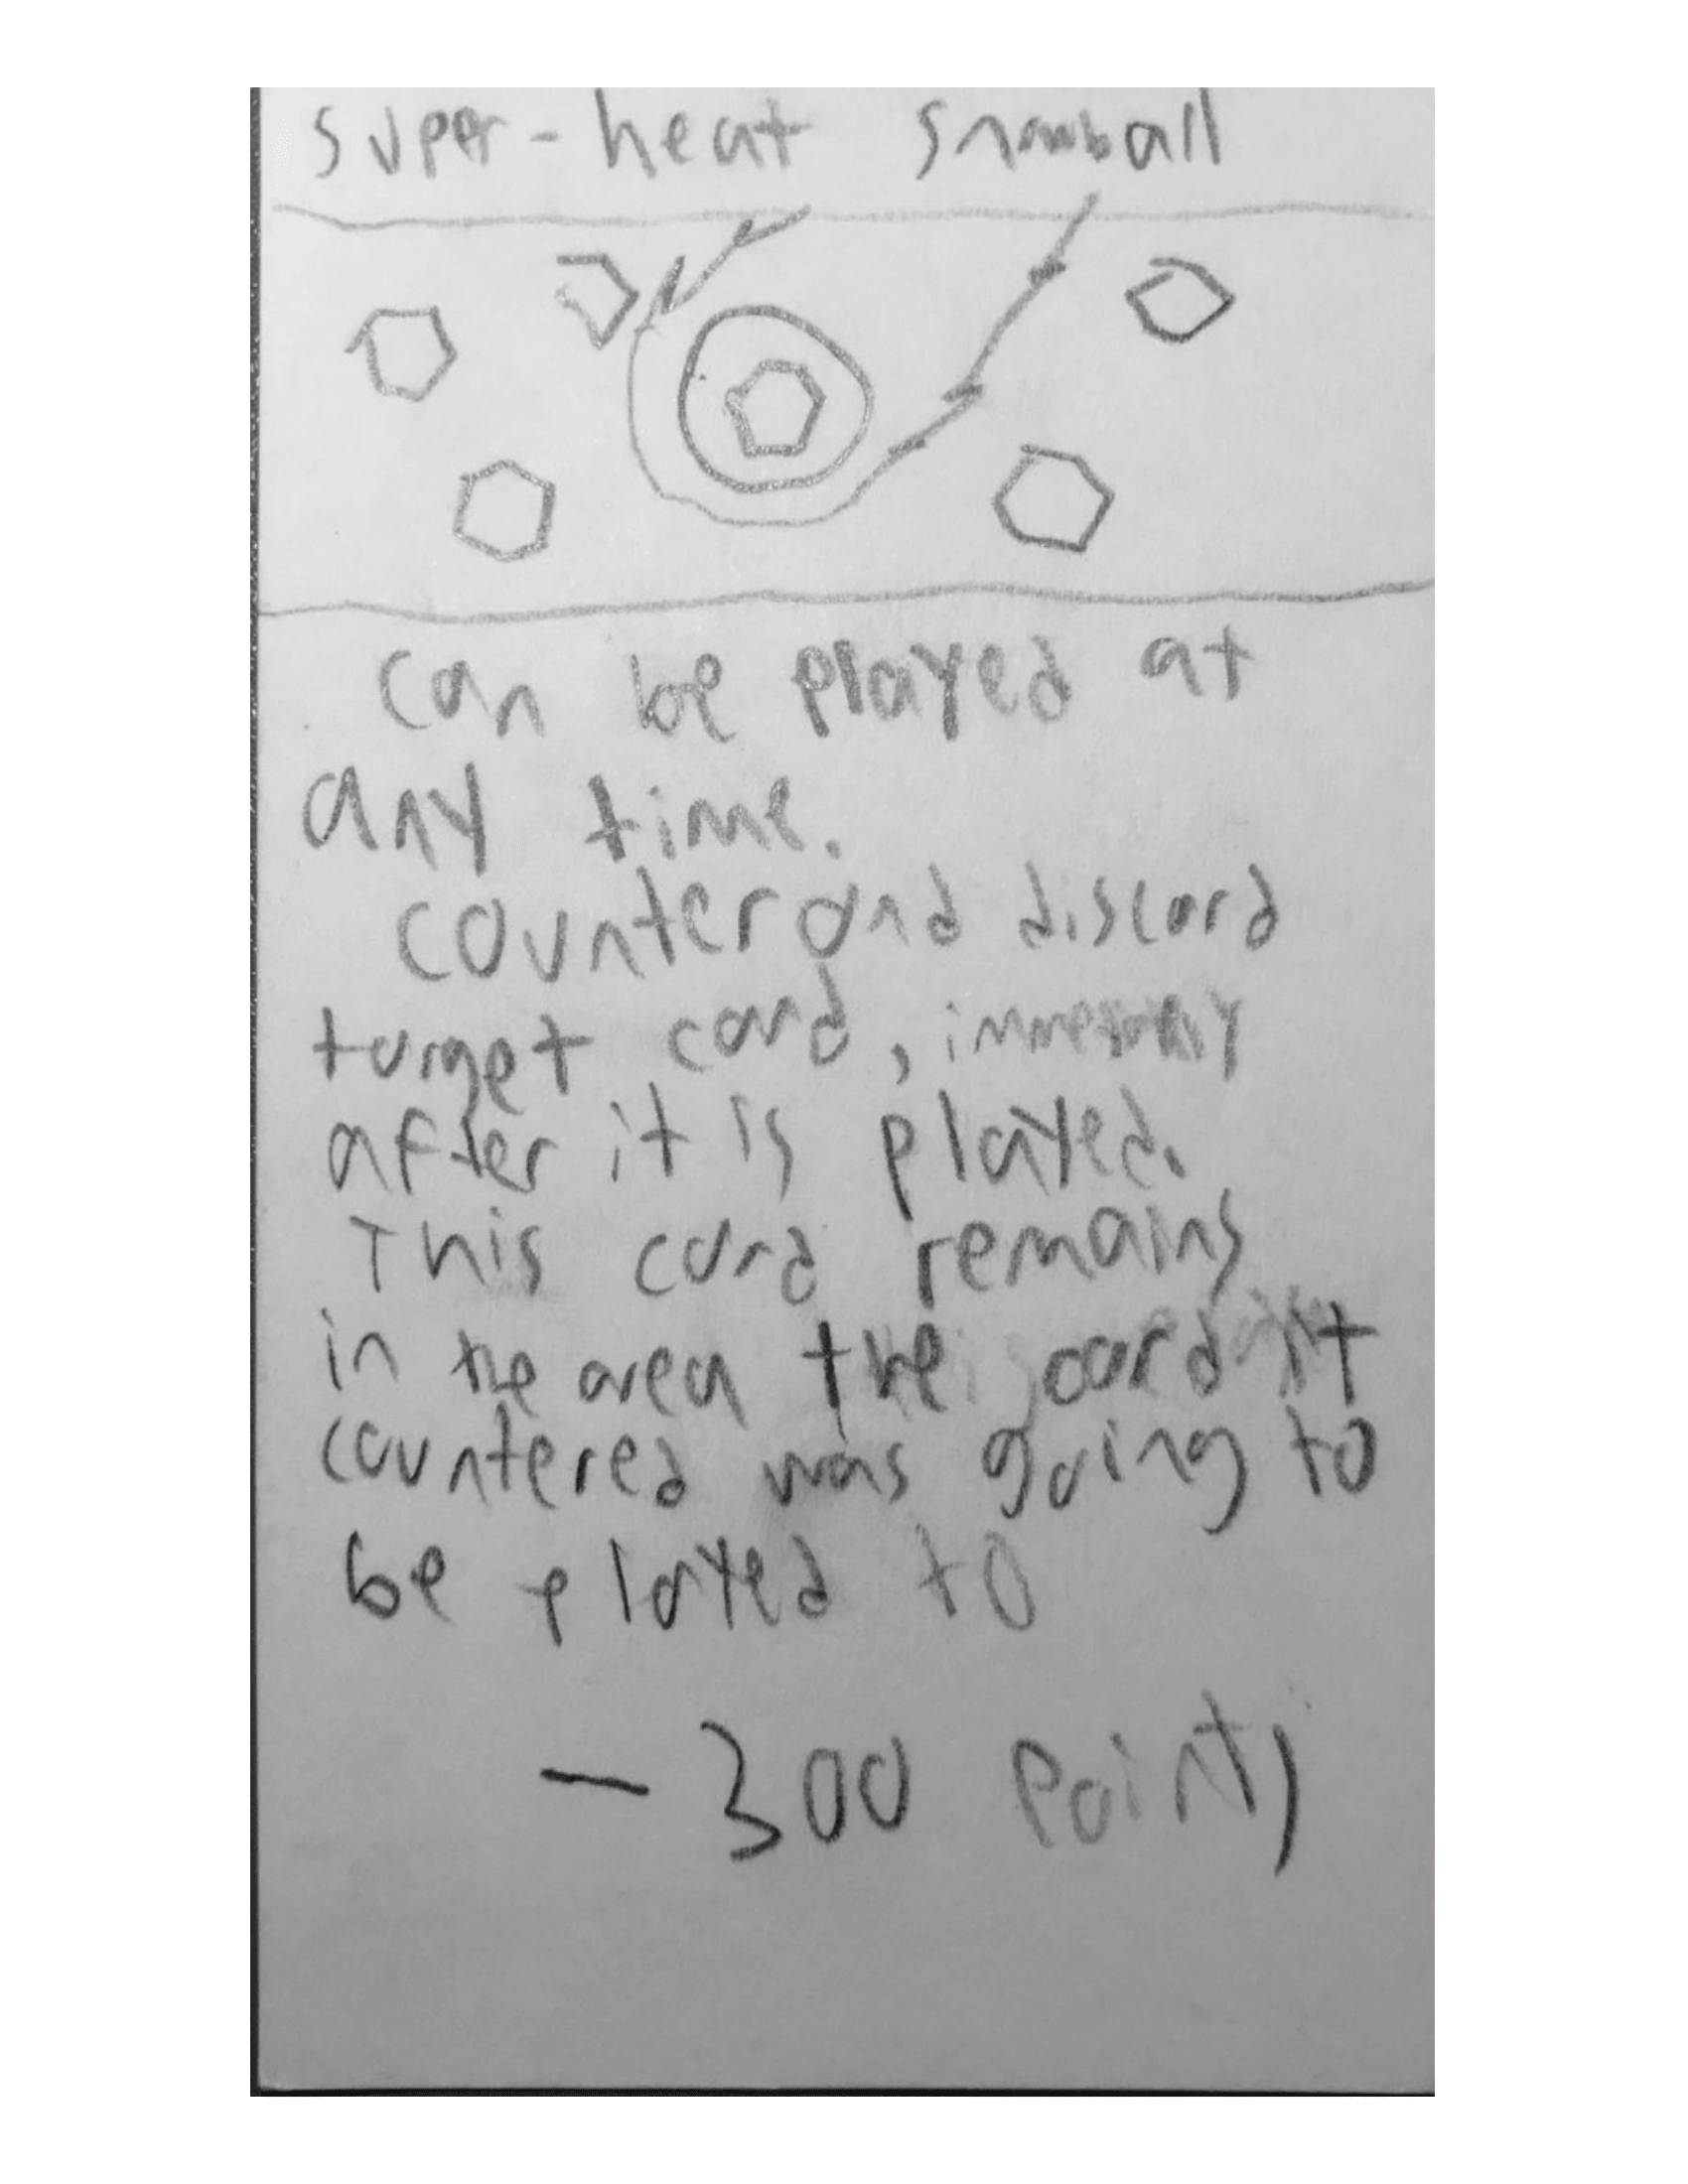 super-heat snowball
can be played at
any time.
counter and discard
target card,
after it is played.
This card remains
in the area the card it
countered was going to
be played to
- 300 points